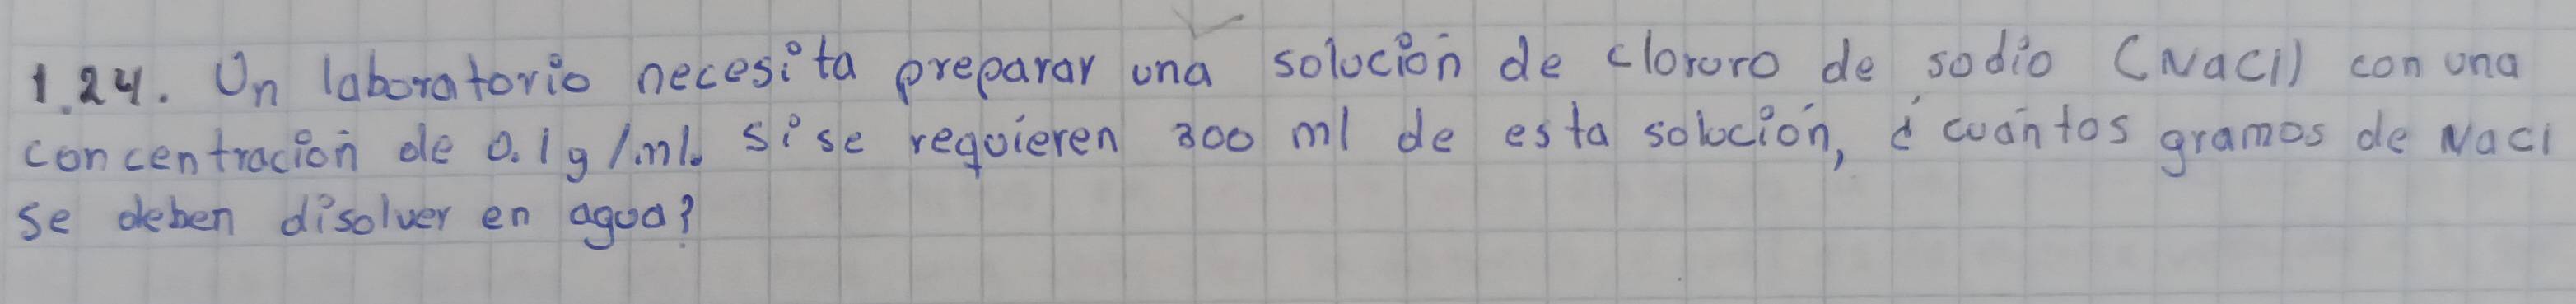 1.24. Un laboratorio necesita preparar una solución de cloruro de sodio (NaCl) con una
concentración de 0.1g/ml. Si se requieren 300 ml de esta solución, ¿cuántos gramos de NaCl
se deben disolver en agua?